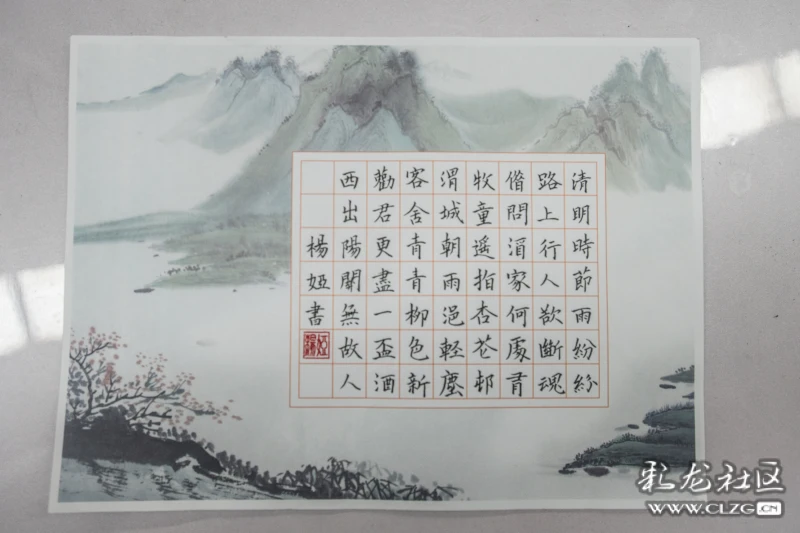 清明時節雨紛紛
路上行人欲斷魂
借問酒家何處有
牧童遥指杏花邨
渭城朝雨浥輕塵
客舍青青柳色新
勸君更盡一盃酒
西出陽關無故人
楊婭書
彩龙社区
WWW.CLZG.CN